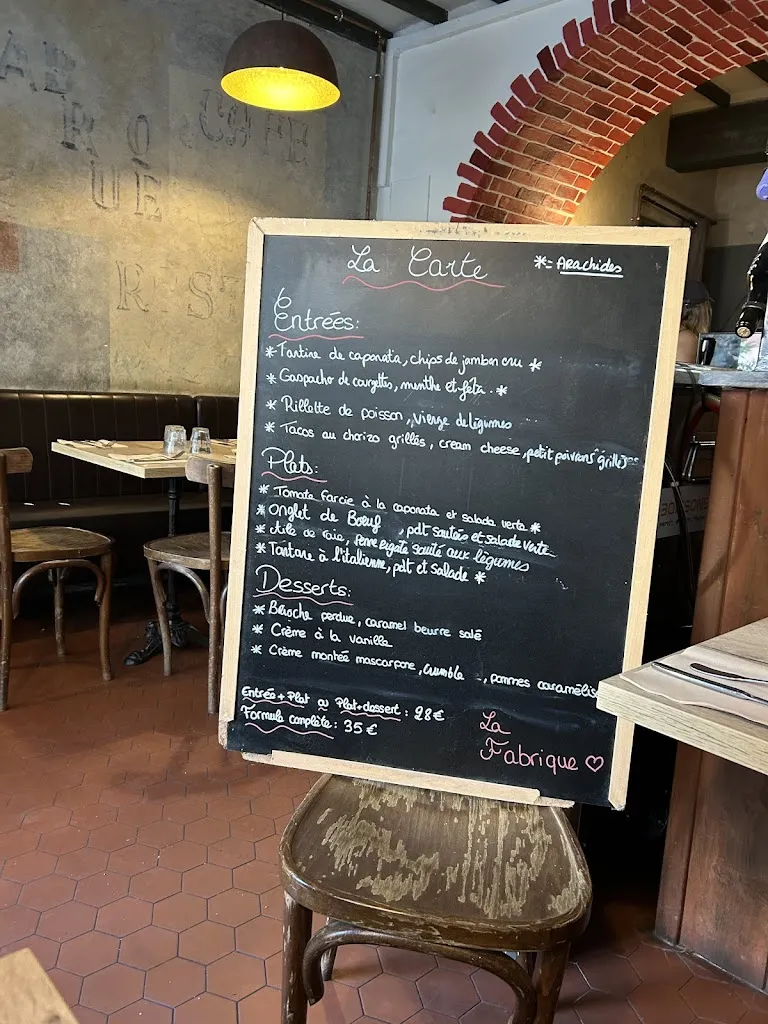 CAFE
REST
La Carte
*= Arachides
Entrées:
* Tartine de caponata, chips de jambon cru *
* Gaspacho de courgettes, menthe et féta. *
* Rillette de poisson, vierge de légumes
* Tacos au chorizo grillés, cream cheese, petit poivrons grillés
Plats:
* Tomate farcie à la caponata et salade verte *
* Onglet de Boeuf, pdt sautées et salade verte
* Aile de raie, penne rigate sauté aux légumes
* Tartare à l'italienne, pdt et salade *
Desserts:
* Brioche perdue, caramel beurre salé
* Crème à la vanille
* Crème montée mascarpone, crumble, pommes caramélis
Entrée + Plat ou Plat + dessert : 28€
Formule complète : 35€
La
Fabrique ♡